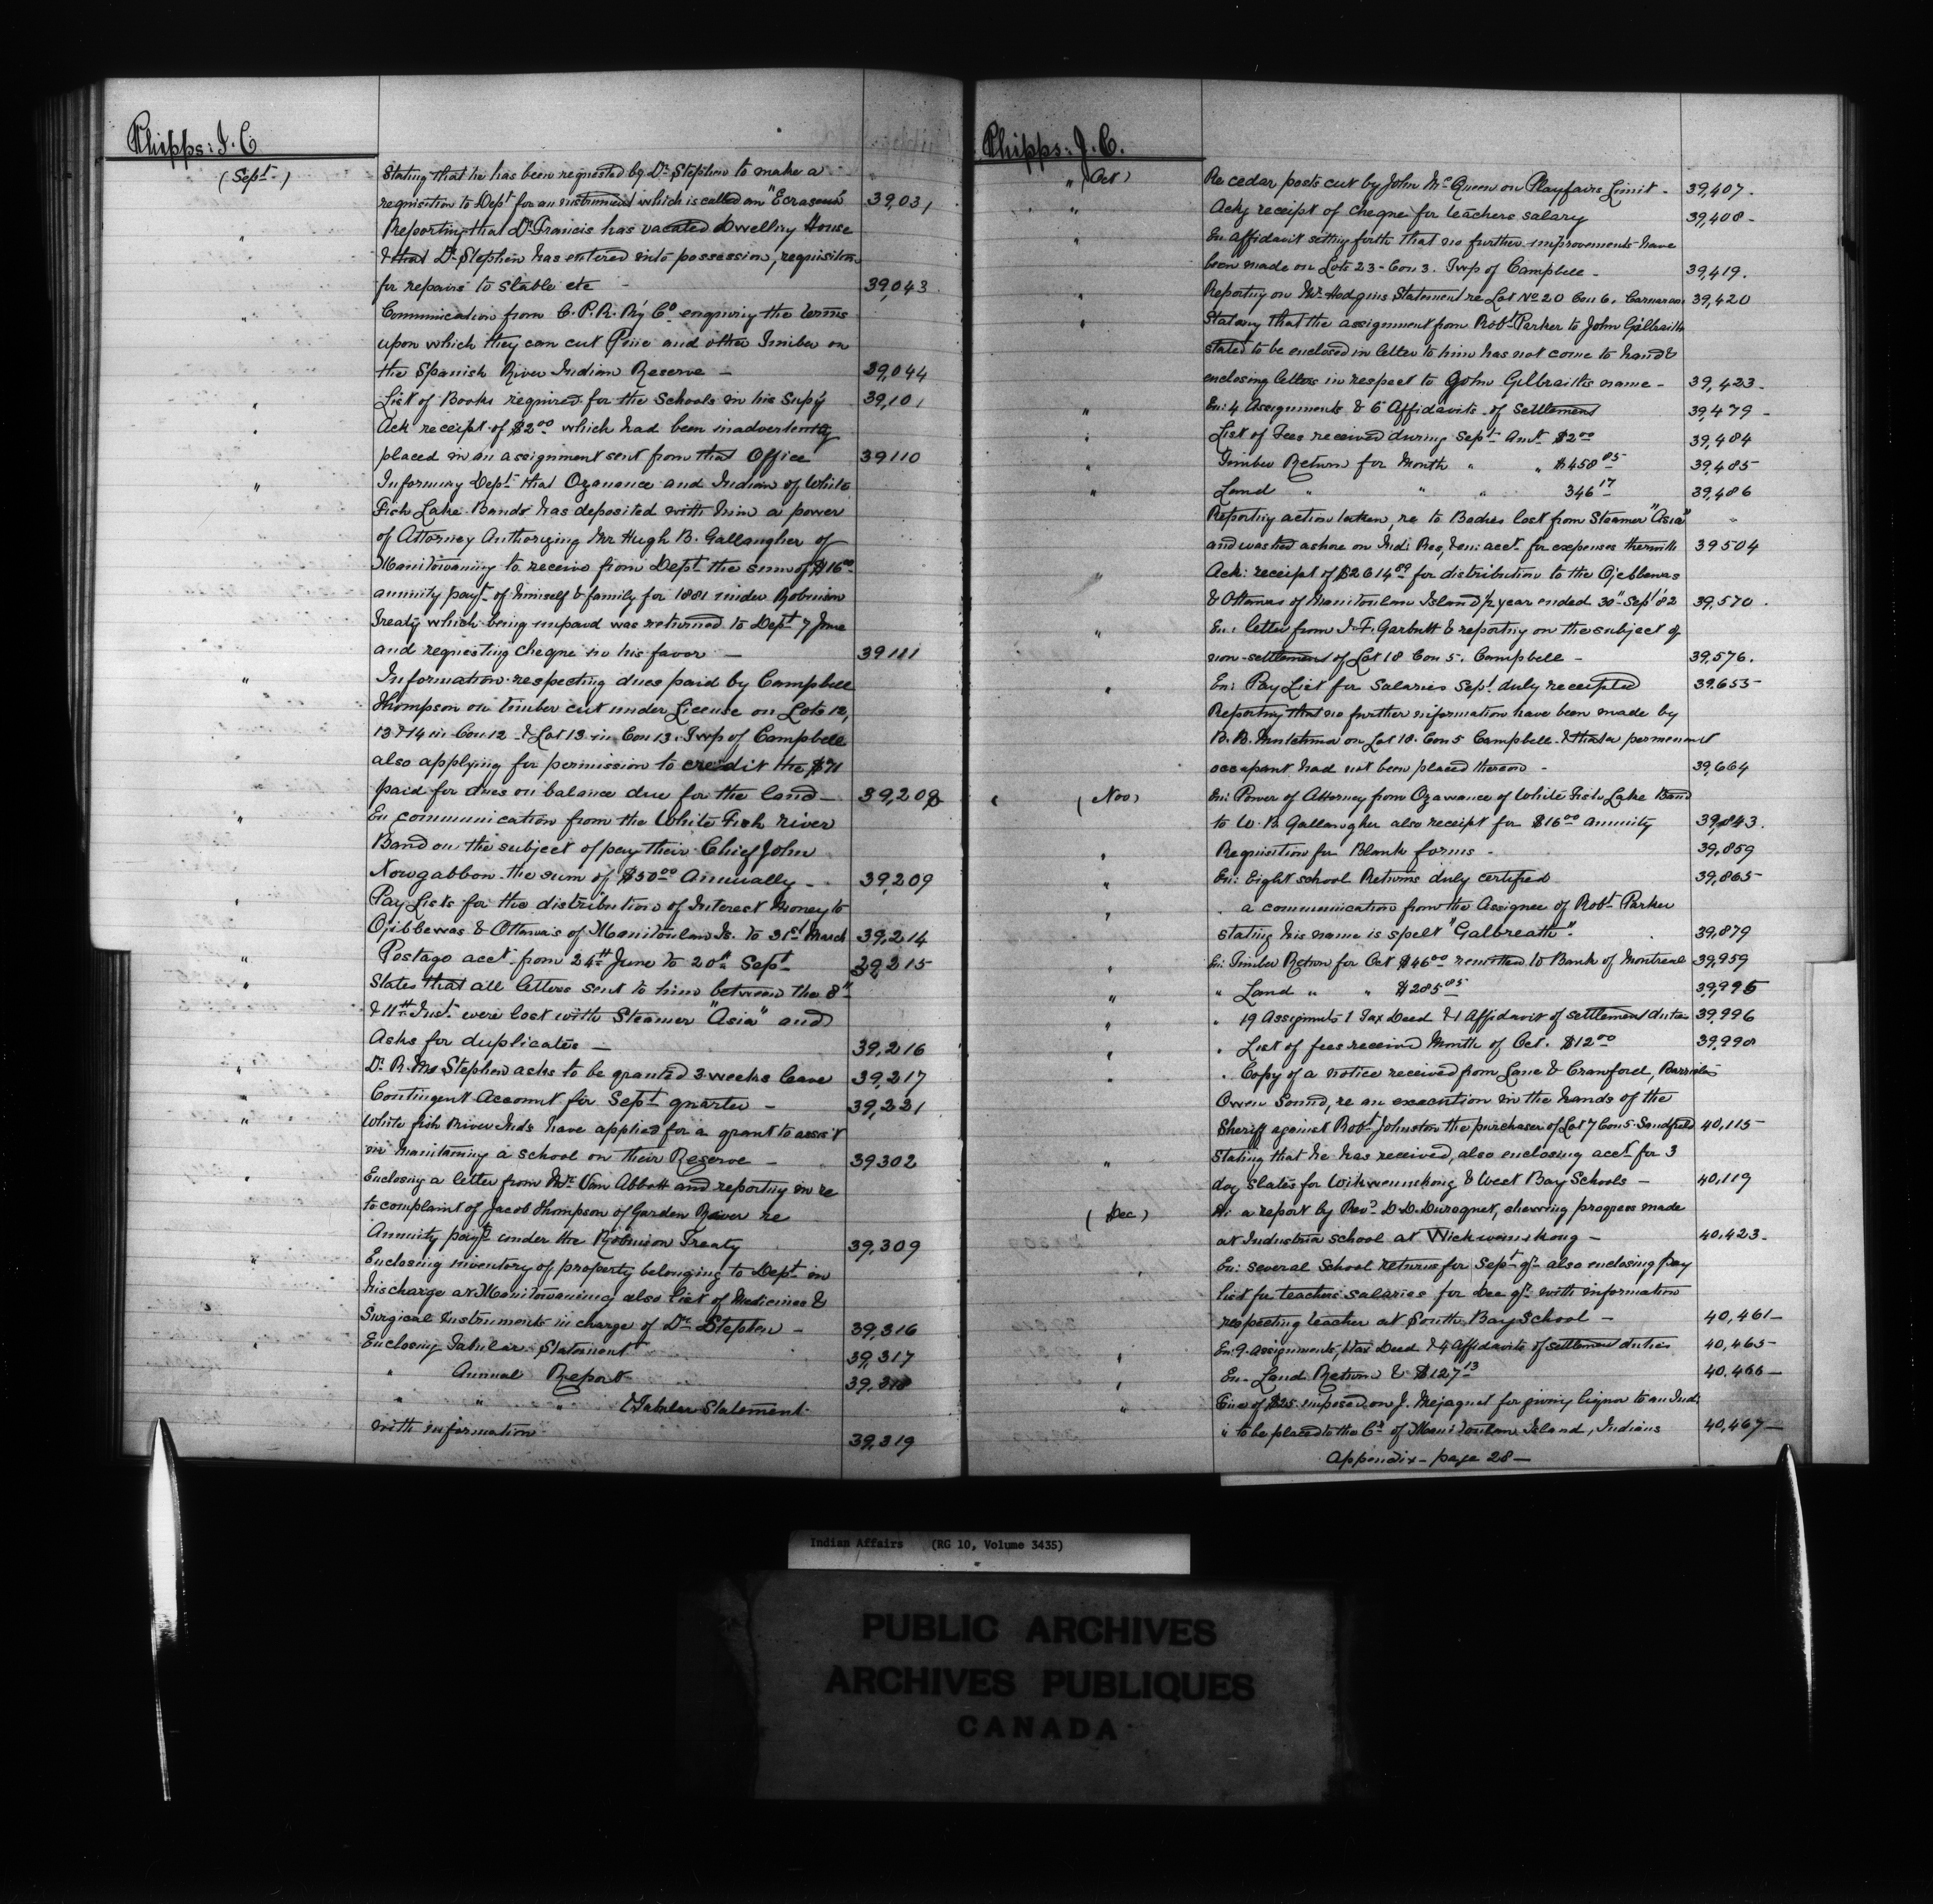 Phipps: J. C
(Sept.)
Stating that he has been requested by Dr Stephen to make a
requisition to Dept for an instrument which is called an "Ecraseur" 39,031
" Reporting that Dr Francis has vacated Dwelling House
& that Dr Stephen has entered into possession, requisition
for repairs to stable etc - 39,043
" Communication from C. P. R. R'y Co enquiring the terms
upon which they can cut Pine and other Timber on
the Spanish River Indian Reserve - 39,044
" List of Books required for the Schools in his Sup'y 39,101
" Ack receipt of $2.00 which had been inadvertently
placed in an assignment sent from that Office 39110
" Informing Dept that Ozawance and Indian of White
Fish Lake Bands has deposited with him a power
of Attorney Authorizing Mr Hugh B. Gallaugher of
Manitowaning to receive from Dept the sum of $16.00
annuity payt of himself & family for 1881 under Robinson
Treaty which being unpaid was returned to Dept 7 June
and requesting cheque in his favor - 39111
" Information respecting dues paid by Campbell
Thompson on timber cut under License on Lots 12,
13 & 14 in Con 12 & Lot 13 in Con 13. Twp of Campbell
also applying for permission to credit the $71
paid for dues on balance due for the land - 39,208
" En communication from the White Fish river
Band on the subject of pay their Chief John
Nowgabbon the sum of $50.00 Annually - 39,209
" Pay Lists for the distribution of Interest Money to
Ojibbewas & Ottawa's of Manitoulin Is. to 31st March 39,214
" Postage acct from 24th June to 20th Sept 39,215
" States that all letters sent to him between the 8th
& 11th Inst. were lost with Steamer "Asia" and
Asks for duplicates - 39,216
" Dr R. M. Stephen asks to be granted 3 weeks leave 39,217
" Contingent Account for Sept quarter - 39,231
" White fish River Inds have applied for a grant to assist
in Maintaining a school on their Reserve - 39302
" Enclosing a letter from Mr Van Abbott and reporting in re
to complaint of Jacob Thompson of Garden River re
Annuity payt under the Robinson Treaty 39,309
" Enclosing inventory of property belonging to Dept in
his charge at Manitowaning also list of Medicines &
Surgical Instruments in charge of Dr Stephen - 39,316
" Enclosing Tabular Statement 39,317
" Annual Report 39,318
" " " & Tabular Statement
with information 39,319
Phipps: J. C.
" (Oct) Re cedar posts cut by John McQueen on Playfairs Limit - 39,407.
" Ackg receipt of cheque for teachers salary 39,408 -
" En Affidavit setting forth that no further improvements have
been made on Lots 23 - Con 3. Twp of Campbell - 39,419.
" Reporting on Mr Hodgins Statement re Lot No 20 Con 6. Carnarvon 39,420
" Stating that the assignment from Robt Parker to John Gilbraith
stated to be enclosed in letter to him has not come to hand &
enclosing letters in respect to John Gilbraiths name - 39,423.
" En: 4 Assignments & 6 Affidavits of Settlement 39,479 -
" List of Fees received during Sept. Amt. $2.00 39,484
" Timber Return for Month " " $458.05 39,485-
" Land " " " 346.17 39,486
Reporting action taken, re to Bodies lost from Steamer "Asia" "
and washed ashore on Indi Res, & en: acct for expenses therewith 39504
" Ack: receipt of $2614.89 for distribution to the Ojebbewas
& Ottawas of Manitoulin Island 1/2 year ended 30th Sept '82 39,570.
" En: letter from J. F. Garbutt & reporting on the subject of
non-settlement of Lot 18 Con 5. Campbell - 39,576.
" En: Pay List for Salaries Sept. duly receipted 39.653-
Reporting that no further information have been made by
on Lot 18. Con 5 Campbell. & that a permanent
occupant had not been placed thereon - 39,664
" (Nov) En: Power of Attorney from Ozawance of White Fish Lake Band
to W. B. Gallaugher also receipt for $16.00 annuity 39,843.
" Requisition for Blank forms - 39,859
" En: Eight school Returns duly certified 39,865-
" " a communication from the Assignee of Robt Parker
stating his name is spelt "Galbreath". 39,879
" En: Timber Return for Oct $46.00 remitted to Bank of Montreal 39,959
" " Land " " $285.85 39,995
" " 19 Assignmts 1 Tax Deed & 1 Affidavit of settlement duties 39,996
" " List of fees received Month of Oct. $12.00 39,998
" " Copy of a notice received from Lane & Crawford, Barristers
Owen Sound, re an execution in the hands of the
Sheriff against Robt Johnston the purchaser of Lot 7 Con 5. Sandfield 40,115-
" Stating that he has received, also enclosing acct for 3
doz slates for Wikwemikong & West Bay Schools - 40,119
(Dec) En: a report by Revd D. D. Duroquet, shewing progress made
at Industrial school at Wickwemikong - 40,423.
" En: several School returns for Sept qr also enclosing Pay
list for teachers salaries for Dec qr with information
respecting teacher at South Bay School - 40,461-
" En: 9. Assignments, 1 tax Deed & 4 Affidavits of settlement duties 40,465-
" En - Land Return & $127.13 40,466 -
" Fine of $25 imposed on J. Mejaquet for giving liquor to an Indi
" to be placed to the Cr of Manitoulin Island, Indians 40,467 -
Appendix - page 28 -
Indian Affairs (RG 10, Volume 3435)
PUBLIC ARCHIVES
ARCHIVES PUBLIQUES
CANADA